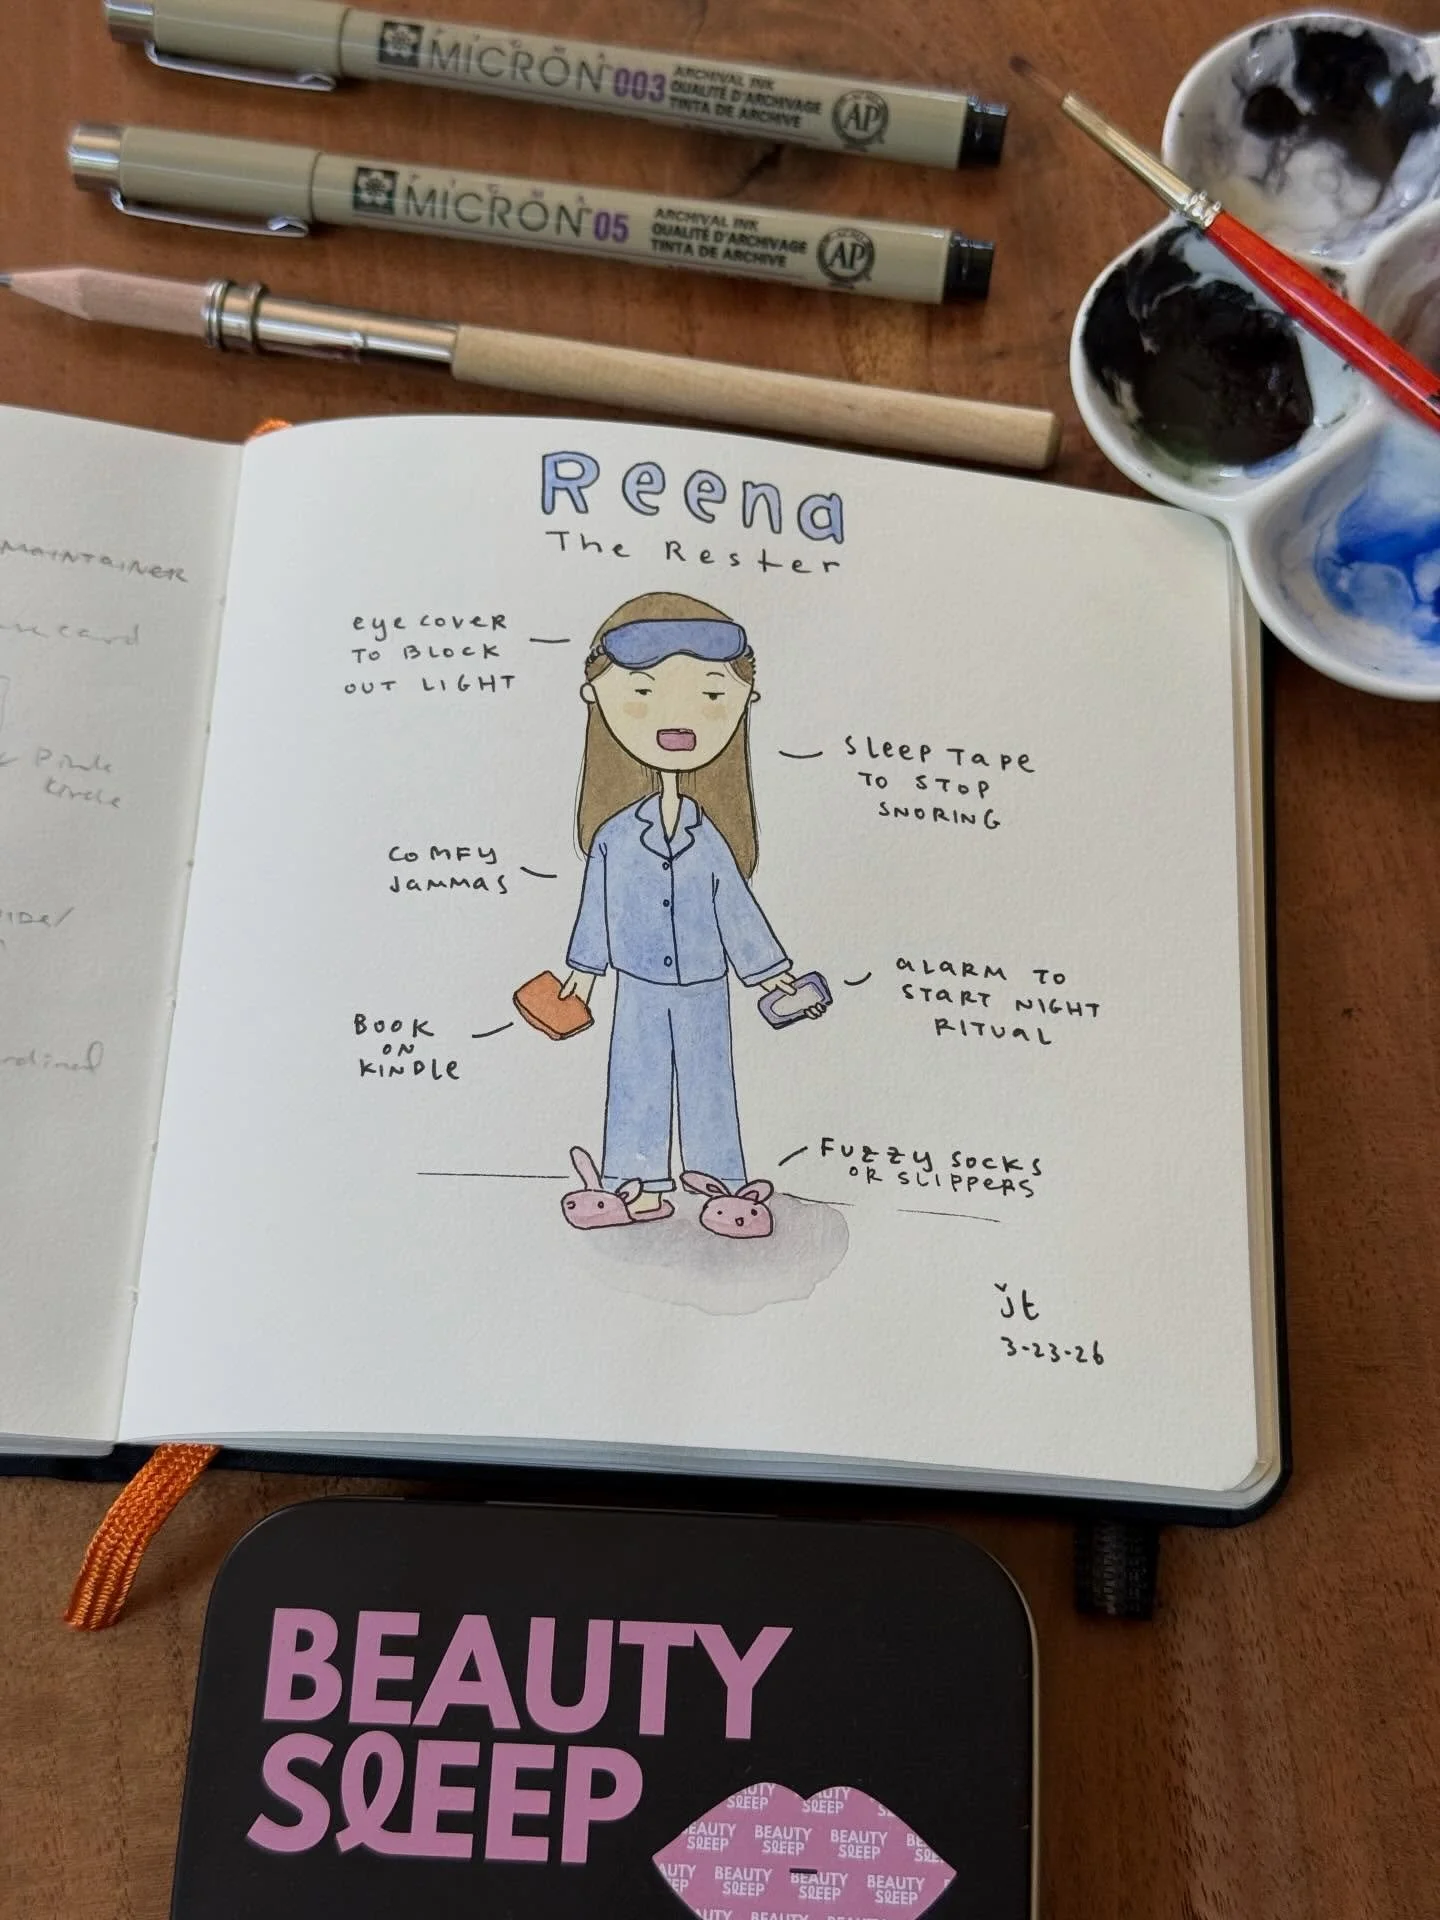 PIGMA
MICRON 003
ARCHIVAL INK
QUALITÉ D'ARCHIVAGE
TINTA DE ARCHIVE
AP
PIGMA
MICRON 05
ARCHIVAL INK
QUALITÉ D'ARCHIVAGE
TINTA DE ARCHIVE
AP
MAINTAINER
card
Reena
The Rester
eye cover
TO BLOCK
OUT LIGHT
SLeep Tape
TO STOP
SNORING
COMFY
JaMMAS
BOOK
ON
KINDLe
aLARM TO
START NIGHT
RITUaL
FUZZY SOCKS
OR SLIPPERS
jt
3-23-26
BEAUTY
SLEEP
BEAUTY
SLEEP
BEAUTY
SLEEP
BEAUTY
SLEEP
BEAUTY
SLEEP
BEAUTY
SLEEP
BEAUTY